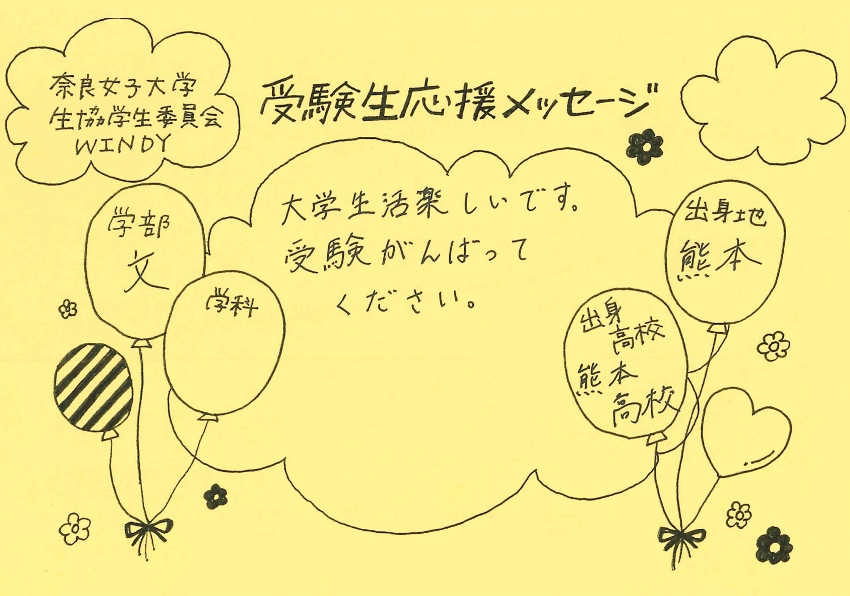 奈良女子大学
生協学生委員会
WINDY
受験生応援メッセージ
大学生活楽しいです。
受験がんばって
ください。
学部
文
学科
出身地
熊本
出身
高校
熊本
高校